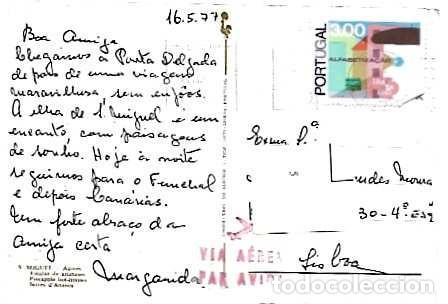 16.5.77
Boa Amiga
Chegamos a Ponta Delgada
depois de uma viagem
maravilhosa, sem enjôos.
A ilha de S. Miguel é um
encanto, com paisagens
de sonho. Hoje à noite
seguimos para o Funchal
e depois Canárias.
Um forte abraço da
amiga certa
Margarida
S. MIGUEL Açores
3.00
ALFABETIZAÇÃO
PORTUGAL
Exma Sr.ª
30-4º
Lisboa
VIA AÉREA
PAR AVION
todocoleccion